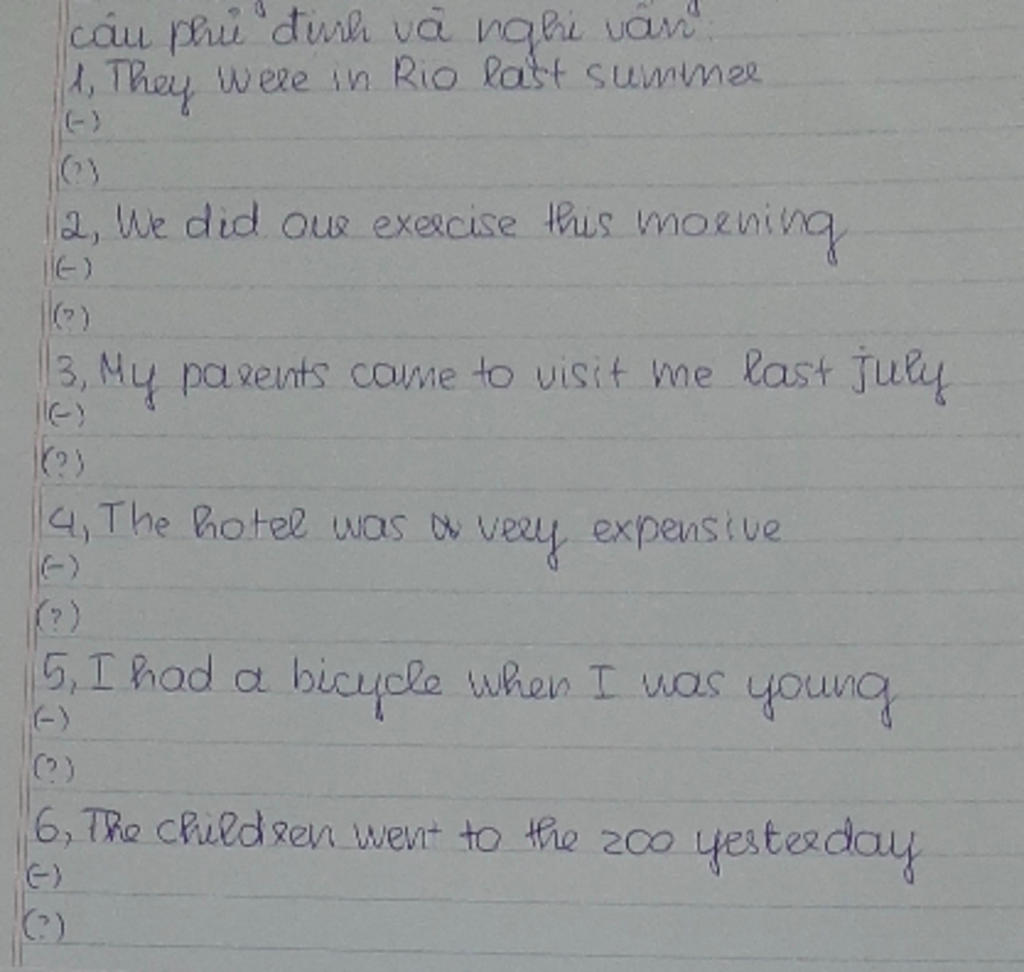 câu phủ định và nghi vấn".
1, They were in Rio last summer
(-)
(?)
2, We did our exercise this morning
(-)
(?)
3, My parents came to visit me last july
(-)
(?)
4, The hotel was very expensive
(-)
(?)
5, I had a bicycle when I was young
(-)
(?)
6, The children went to the zoo yesterday
(-)
(?)